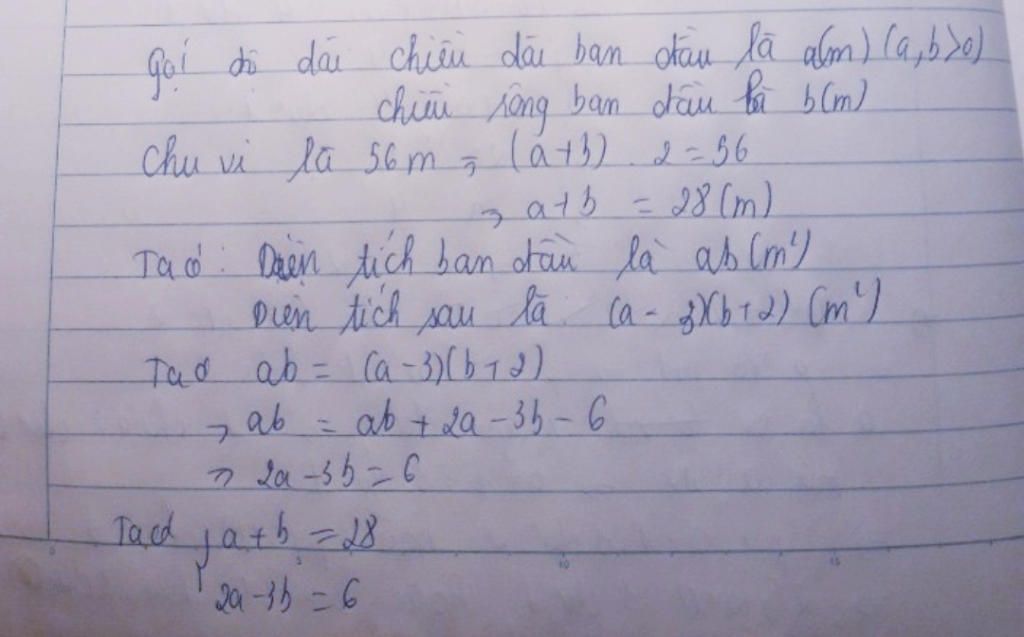 Gọi độ dài chiều dài ban đầu là a(m) (a,b>0)
chiều rộng ban đầu là b(m)
Chu vi là 56m ⇒ (a+b) . 2 = 56
⇒ a+b = 28(m)
Ta có : Diện tích ban đầu là ab(m²)
Diện tích sau là (a-3)(b+2) (m²)
Ta có ab = (a-3)(b+2)
⇒ ab = ab + 2a - 3b - 6
⇒ 2a - 3b = 6
Ta có { a+b = 28
2a-3b = 6
0 5 10 15